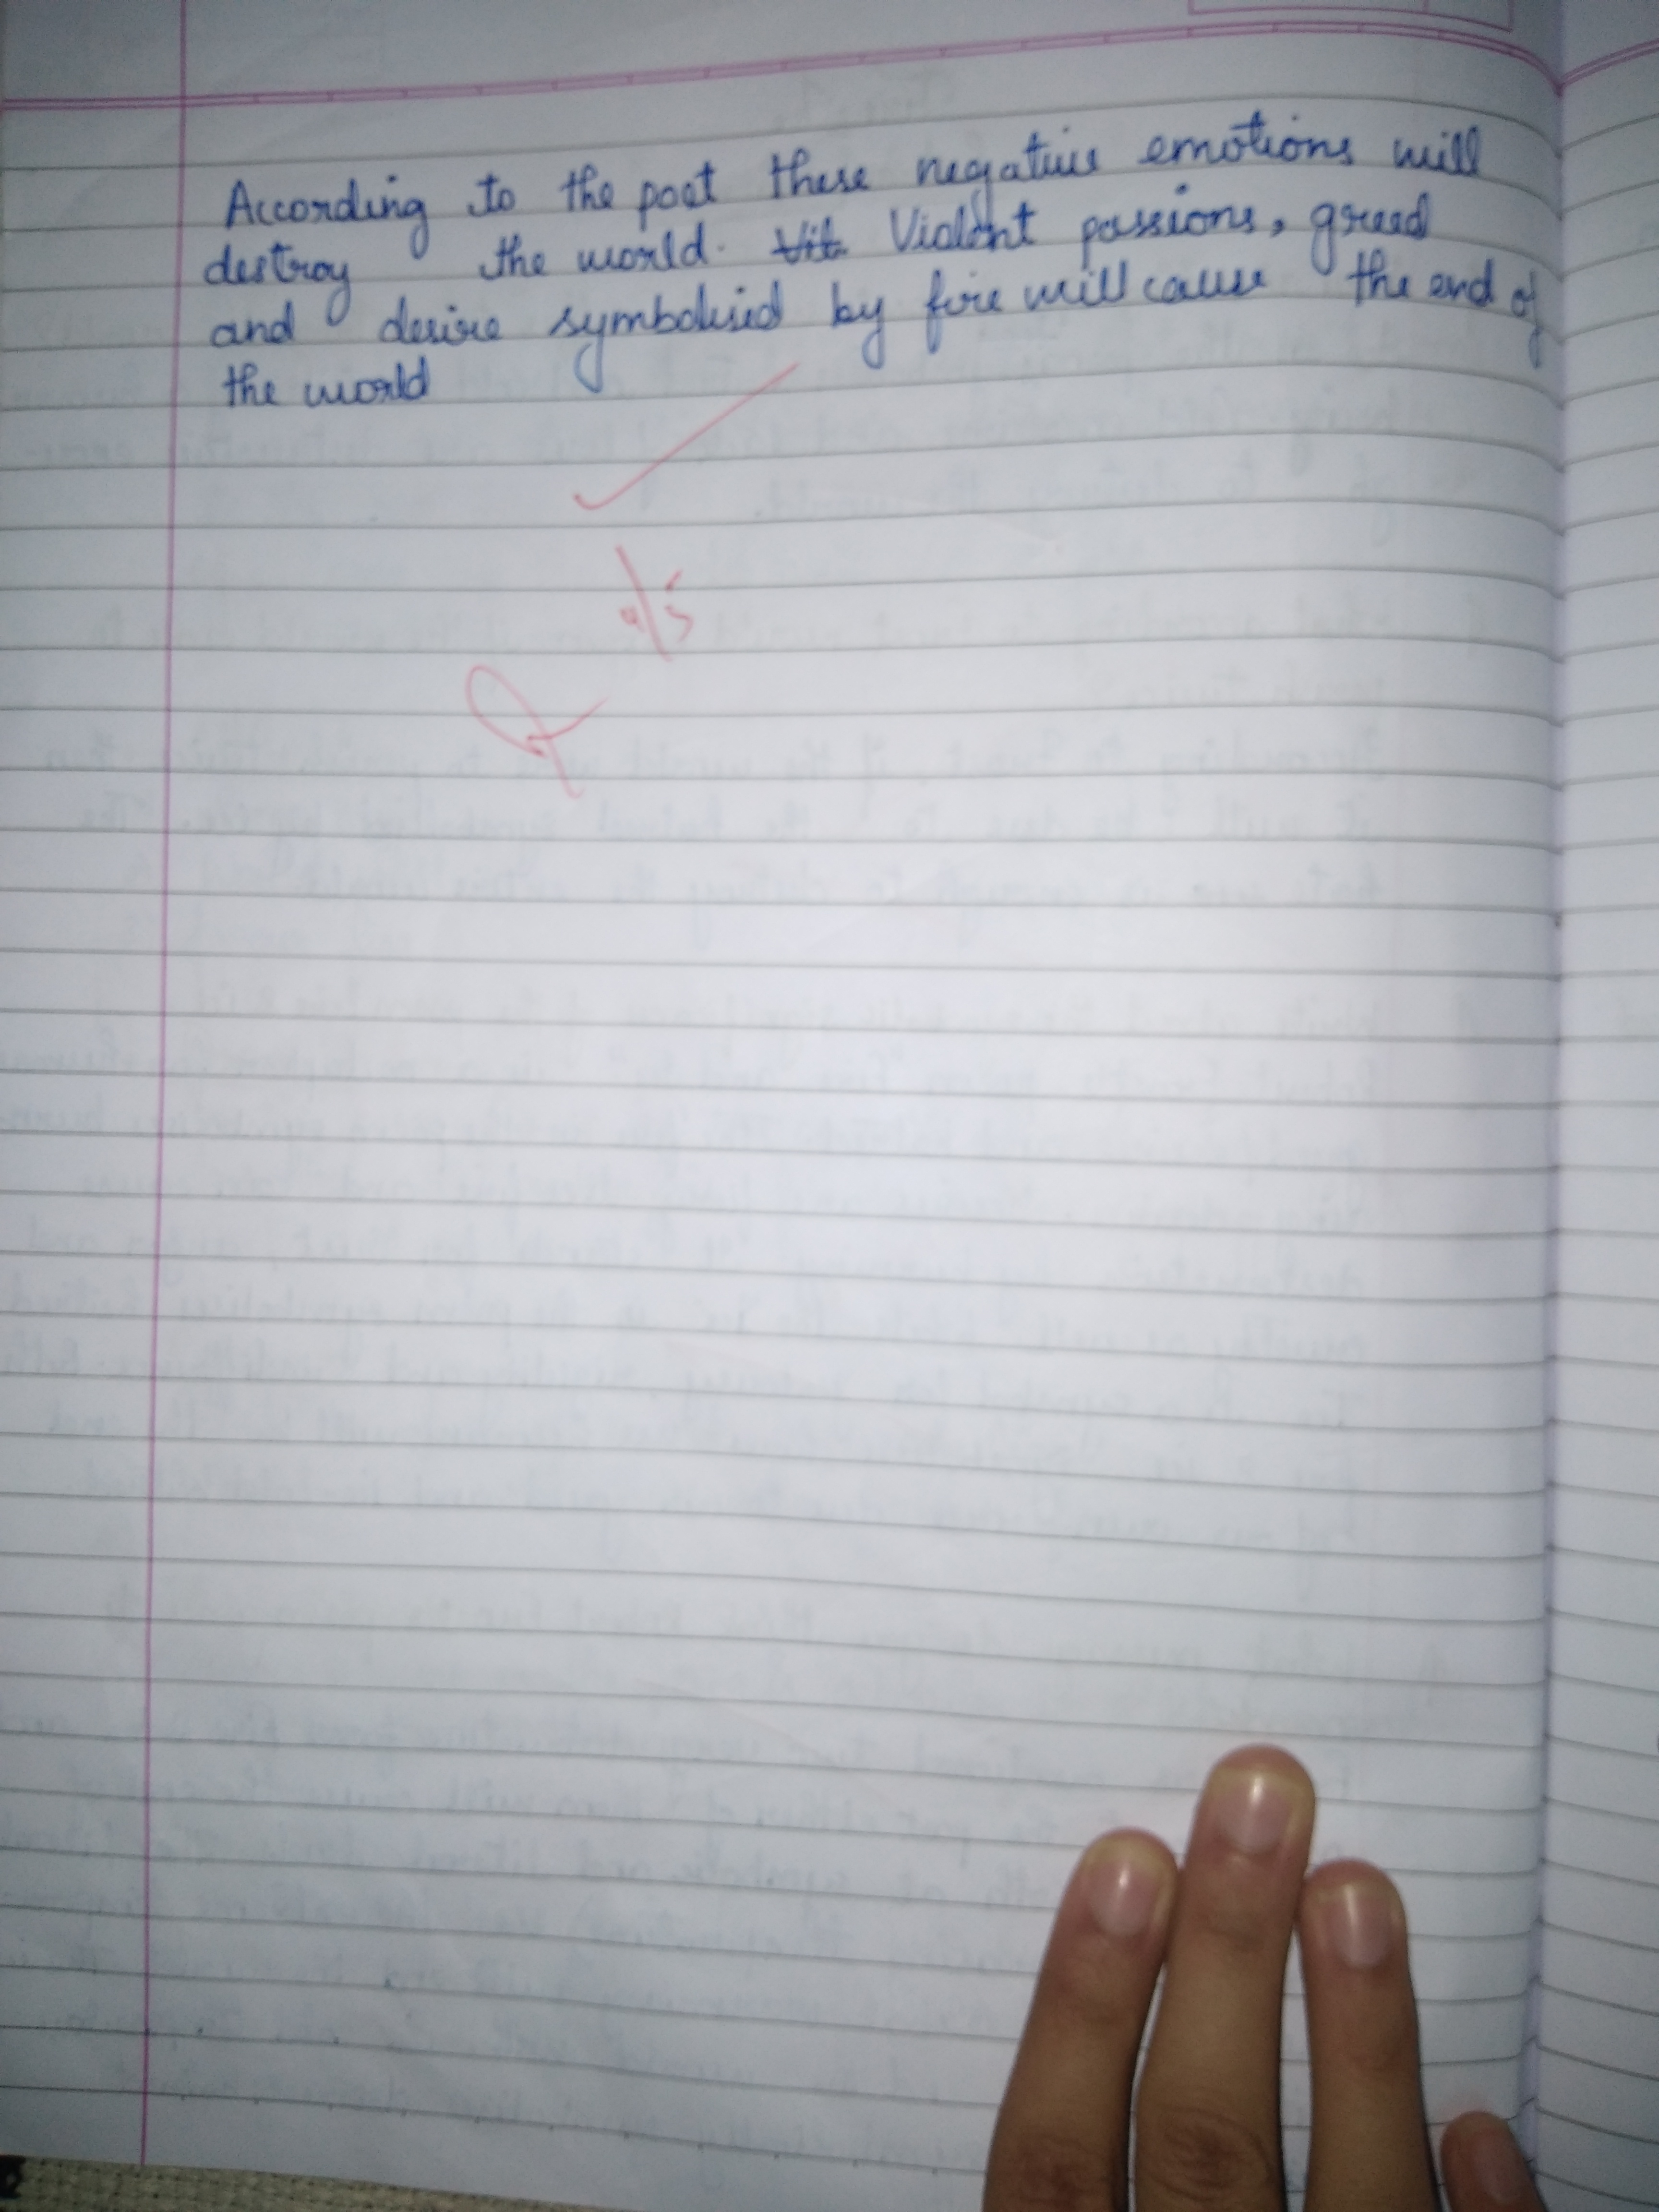 According to the poet these negative emotions will
destroy the world. Violent passions, greed
and desire symbolised by fire will cause the end of
the world